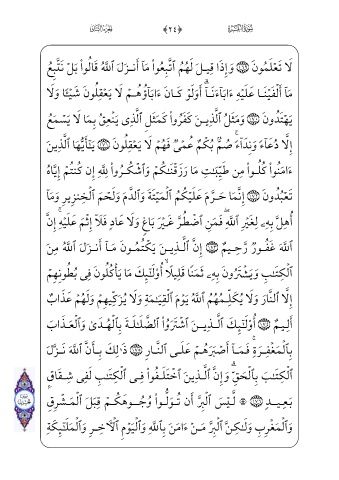 سُورَةُ الْبَقَرَةِ ﴿٢٤﴾ الجزء الثاني
لَا تَعْلَمُونَ وَإِذَا قِيلَ لَهُمُ ٱتَّبِعُواْ مَآ أَنزَلَ ٱللَّهُ قَالُواْ بَلْ نَتَّبِعُ
مَآ أَلْفَيْنَا عَلَيْهِ ءَابَآءَنَآ أَوَلَوْ كَانَ ءَابَآؤُهُمْ لَا يَعْقِلُونَ شَيْـًٔا وَلَا
يَهْتَدُونَ وَمَثَلُ ٱلَّذِينَ كَفَرُواْ كَمَثَلِ ٱلَّذِى يَنْعِقُ بِمَا لَا يَسْمَعُ
إِلَّا دُعَآءً وَنِدَآءً صُمٌّۢ بُكْمٌ عُمْىٌ فَهُمْ لَا يَعْقِلُونَ يَـٰٓأَيُّهَا ٱلَّذِينَ
ءَامَنُواْ كُلُواْ مِن طَيِّبَـٰتِ مَا رَزَقْنَـٰكُمْ وَٱشْكُرُواْ لِلَّهِ إِن كُنتُمْ إِيَّاهُ
تَعْبُدُونَ إِنَّمَا حَرَّمَ عَلَيْكُمُ ٱلْمَيْتَةَ وَٱلدَّمَ وَلَحْمَ ٱلْخِنزِيرِ وَمَآ
أُهِلَّ بِهِۦ لِغَيْرِ ٱللَّهِ فَمَنِ ٱضْطُرَّ غَيْرَ بَاغٍ وَلَا عَادٍ فَلَآ إِثْمَ عَلَيْهِ إِنَّ
ٱللَّهَ غَفُورٌ رَّحِيمٌ إِنَّ ٱلَّذِينَ يَكْتُمُونَ مَآ أَنزَلَ ٱللَّهُ مِنَ
ٱلْكِتَـٰبِ وَيَشْتَرُونَ بِهِۦ ثَمَنًا قَلِيلًا أُوْلَـٰٓئِكَ مَا يَأْكُلُونَ فِى بُطُونِهِمْ
إِلَّا ٱلنَّارَ وَلَا يُكَلِّمُهُمُ ٱللَّهُ يَوْمَ ٱلْقِيَـٰمَةِ وَلَا يُزَكِّيهِمْ وَلَهُمْ عَذَابٌ
أَلِيمٌ أُوْلَـٰٓئِكَ ٱلَّذِينَ ٱشْتَرَوُاْ ٱلضَّلَـٰلَةَ بِٱلْهُدَىٰ وَٱلْعَذَابَ
بِٱلْمَغْفِرَةِ فَمَآ أَصْبَرَهُمْ عَلَى ٱلنَّارِ ذَٰلِكَ بِأَنَّ ٱللَّهَ نَزَّلَ
ٱلْكِتَـٰبَ بِٱلْحَقِّ وَإِنَّ ٱلَّذِينَ ٱخْتَلَفُواْ فِى ٱلْكِتَـٰبِ لَفِى شِقَاقٍۭ
بَعِيدٍ ۞ لَّيْسَ ٱلْبِرُّ أَن تُوَلُّواْ وُجُوهَكُمْ قِبَلَ ٱلْمَشْرِقِ
وَٱلْمَغْرِبِ وَلَـٰكِنَّ ٱلْبِرَّ مَنْ ءَامَنَ بِٱللَّهِ وَٱلْيَوْمِ ٱلْـَٔاخِرِ وَٱلْمَلَـٰٓئِكَةِ